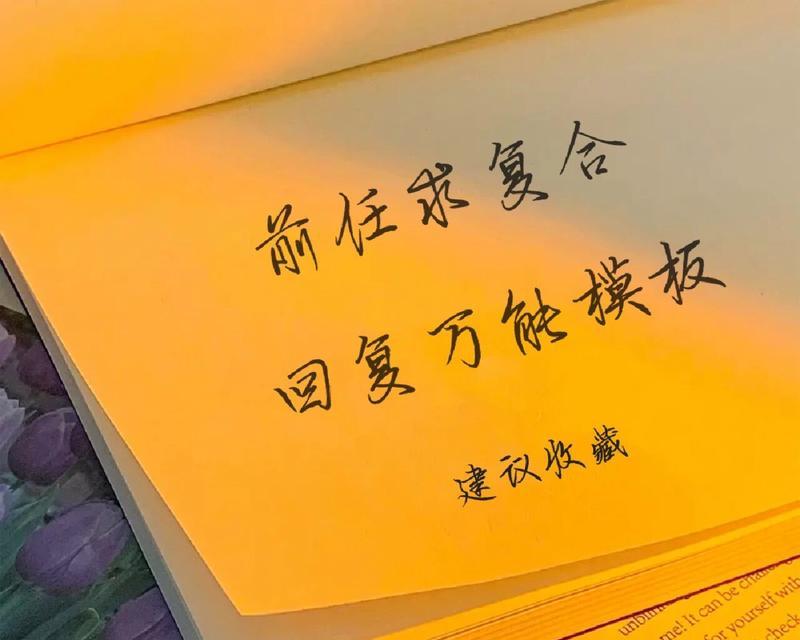 前任求复合
回复万能模板
建议收藏
me! It can be
for yourself with
check